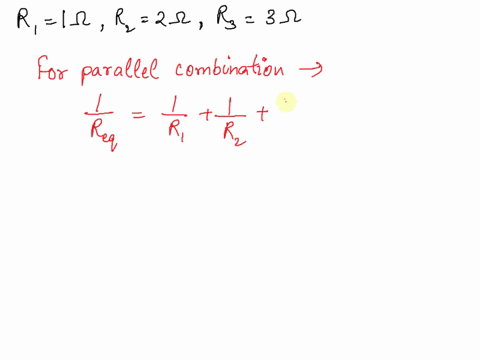 R₁ = 1Ω , R₂ = 2Ω , R₃ = 3Ω
For parallel combination →
1/Req = 1/R₁ + 1/R₂ +